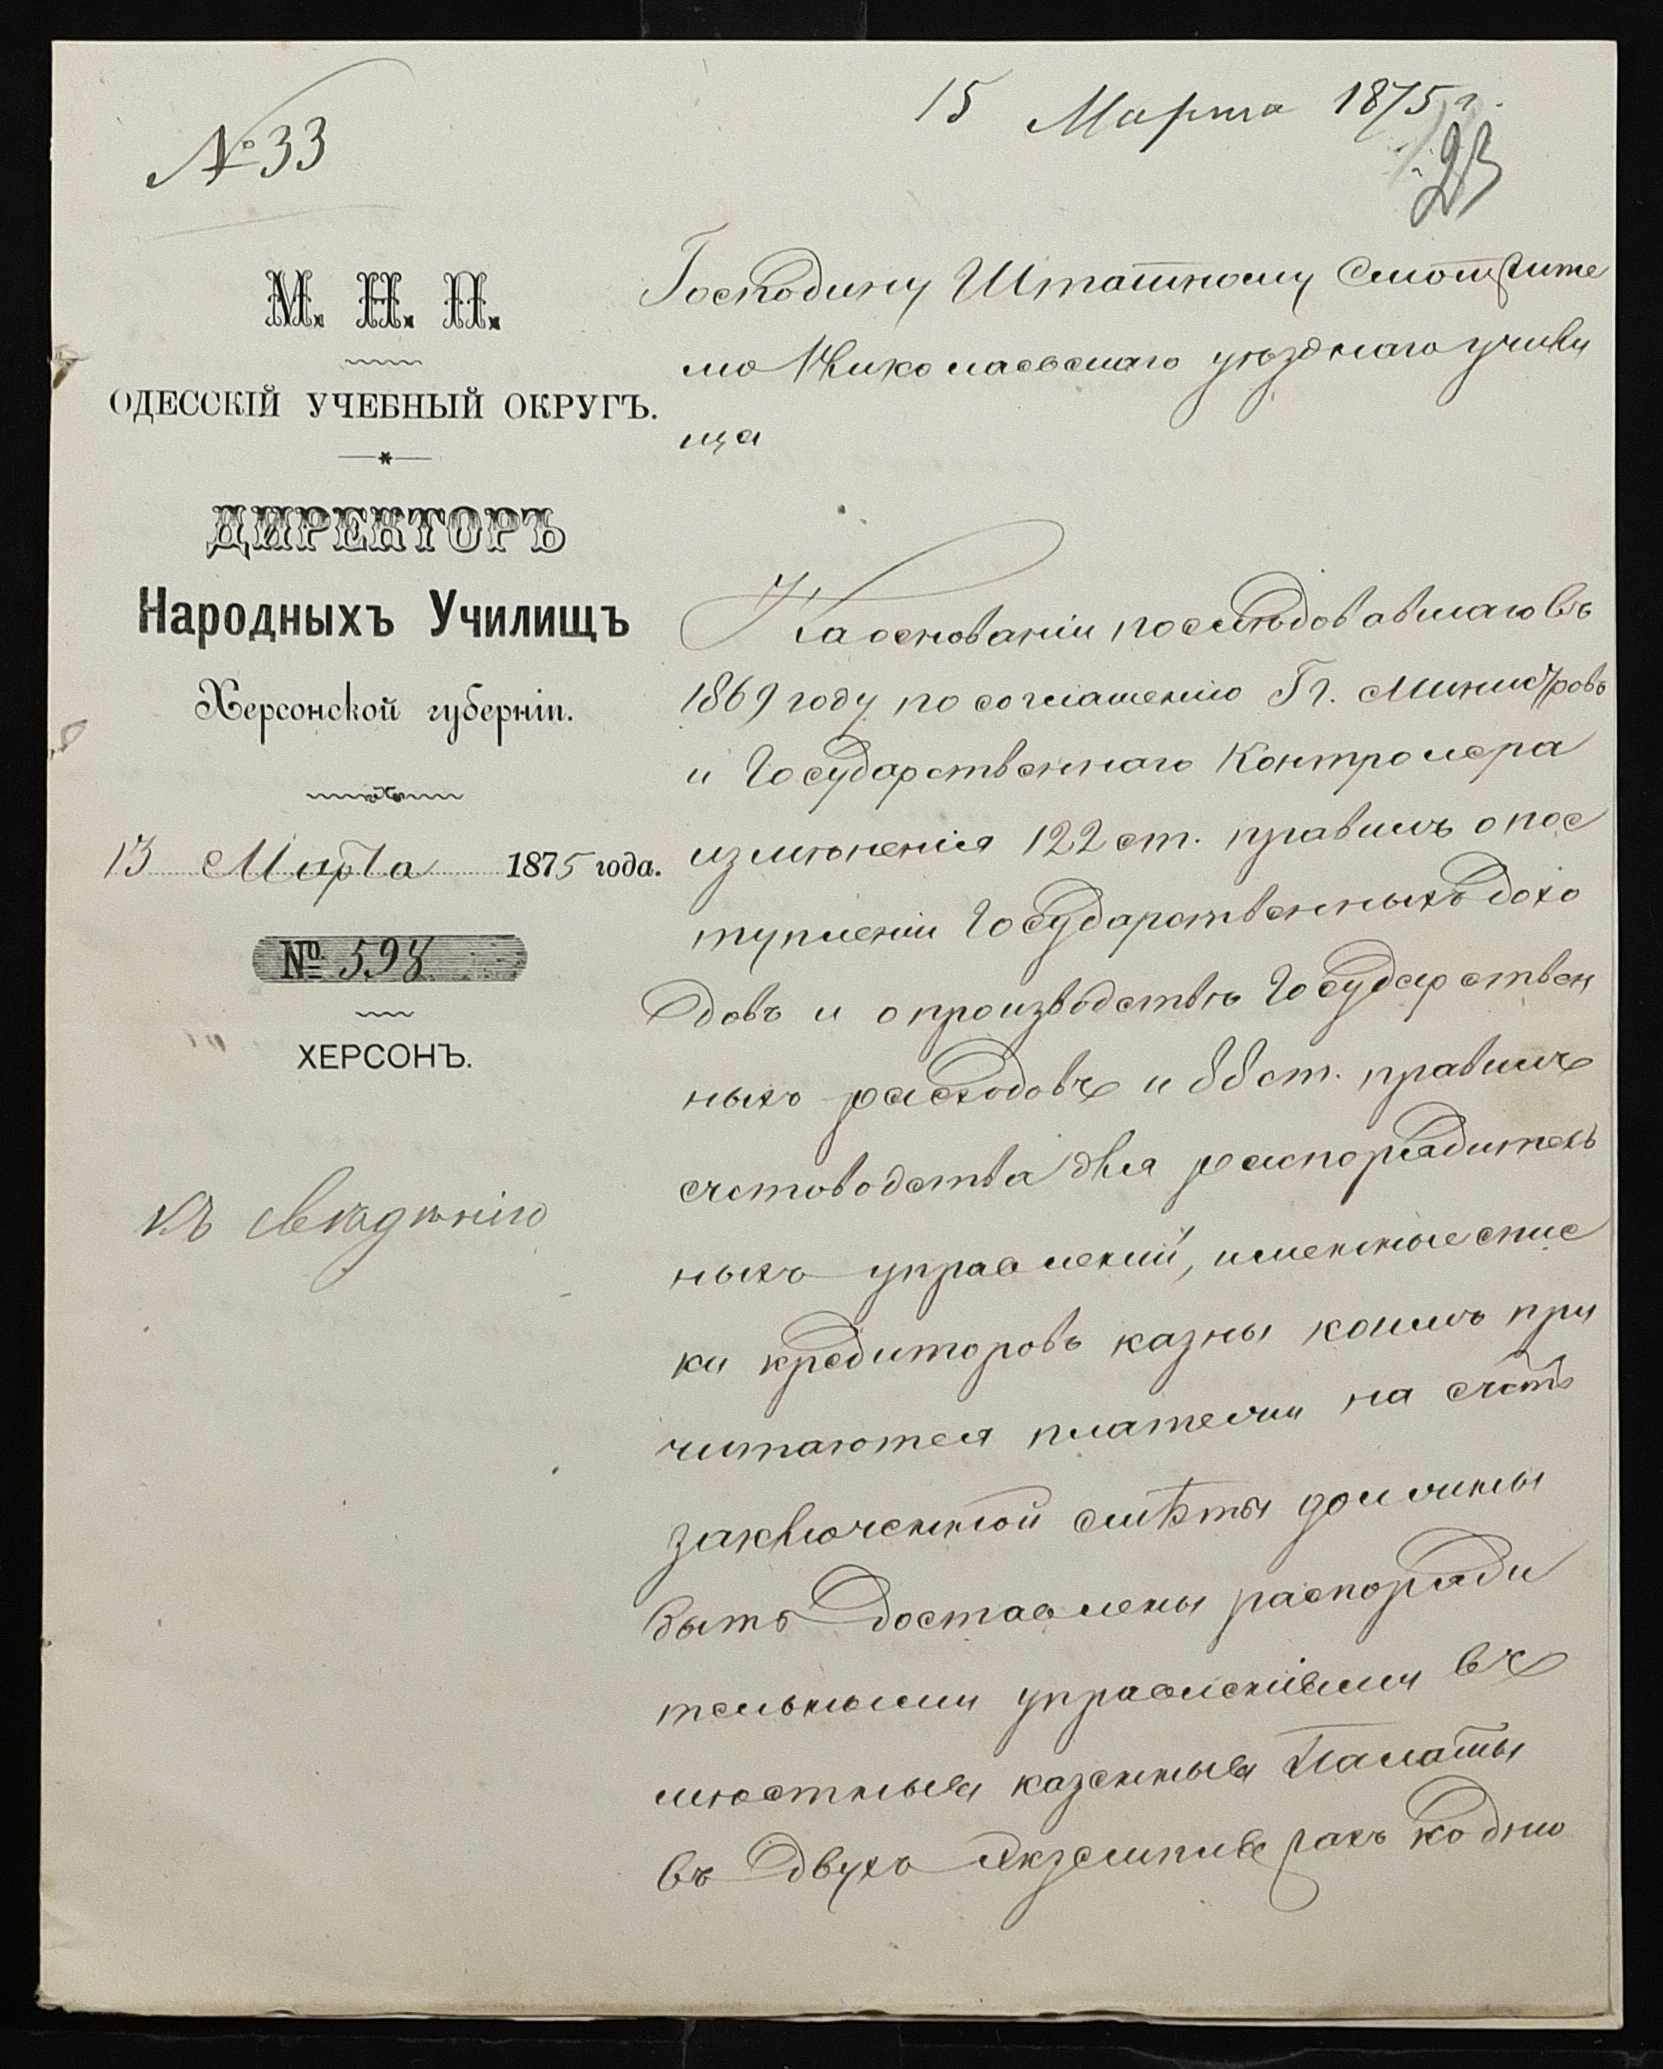 № 33
15 Марта 1875 г.
23
М. Н. П.
ОДЕССКІЙ УЧЕБНЫЙ ОКРУГЪ.
ДИРЕКТОРЪ
Народныхъ Училищъ
Херсонской губерніи.
13 Марта 1875 года.
№ 598
ХЕРСОНЪ.
къ свѣдѣнію
Господину Штатному Смотрите
лю Николаевскаго уѣзднаго учили
ща
На основаніи послѣдовавшаго въ
1869 году по соглашенію Гг. Министровъ
и Государственнаго Контролера
измѣненія 122 ст. правилъ о пос
тупленіи Государственныхъ дохо
довъ и о производствѣ Государствен
ныхъ расходовъ и 88 ст. правилъ
счетоводства для распорядитель
ныхъ управленій, именные спис
ки кредиторовъ казны коимъ при
читаются платежи на счетъ
заключенной смѣты должны
быть доставлены распоряди
тельными управленіями въ
мѣстныя казенныя Палаты
въ двухъ экземплярахъ ко дню